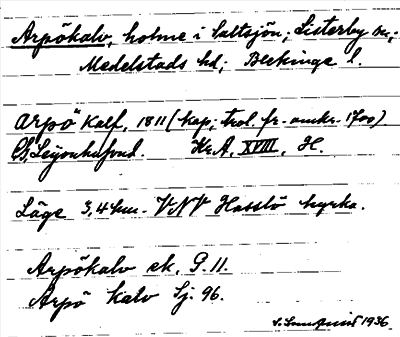 Arpökalv, holme i Saltsjön; Listerby sn.;
Medelstads hd; Blekinge l.
Arpö Kalf, 1811 (kop; trol. fr. omkr. 1700)
G. Leijonhufvud. Kr.A. XVIII, H.
Läge 3,4 km. VNV Hasslö kyrka.
Arpökalv ek. G. 11.
Arpö kalv Sj. 96.
1936